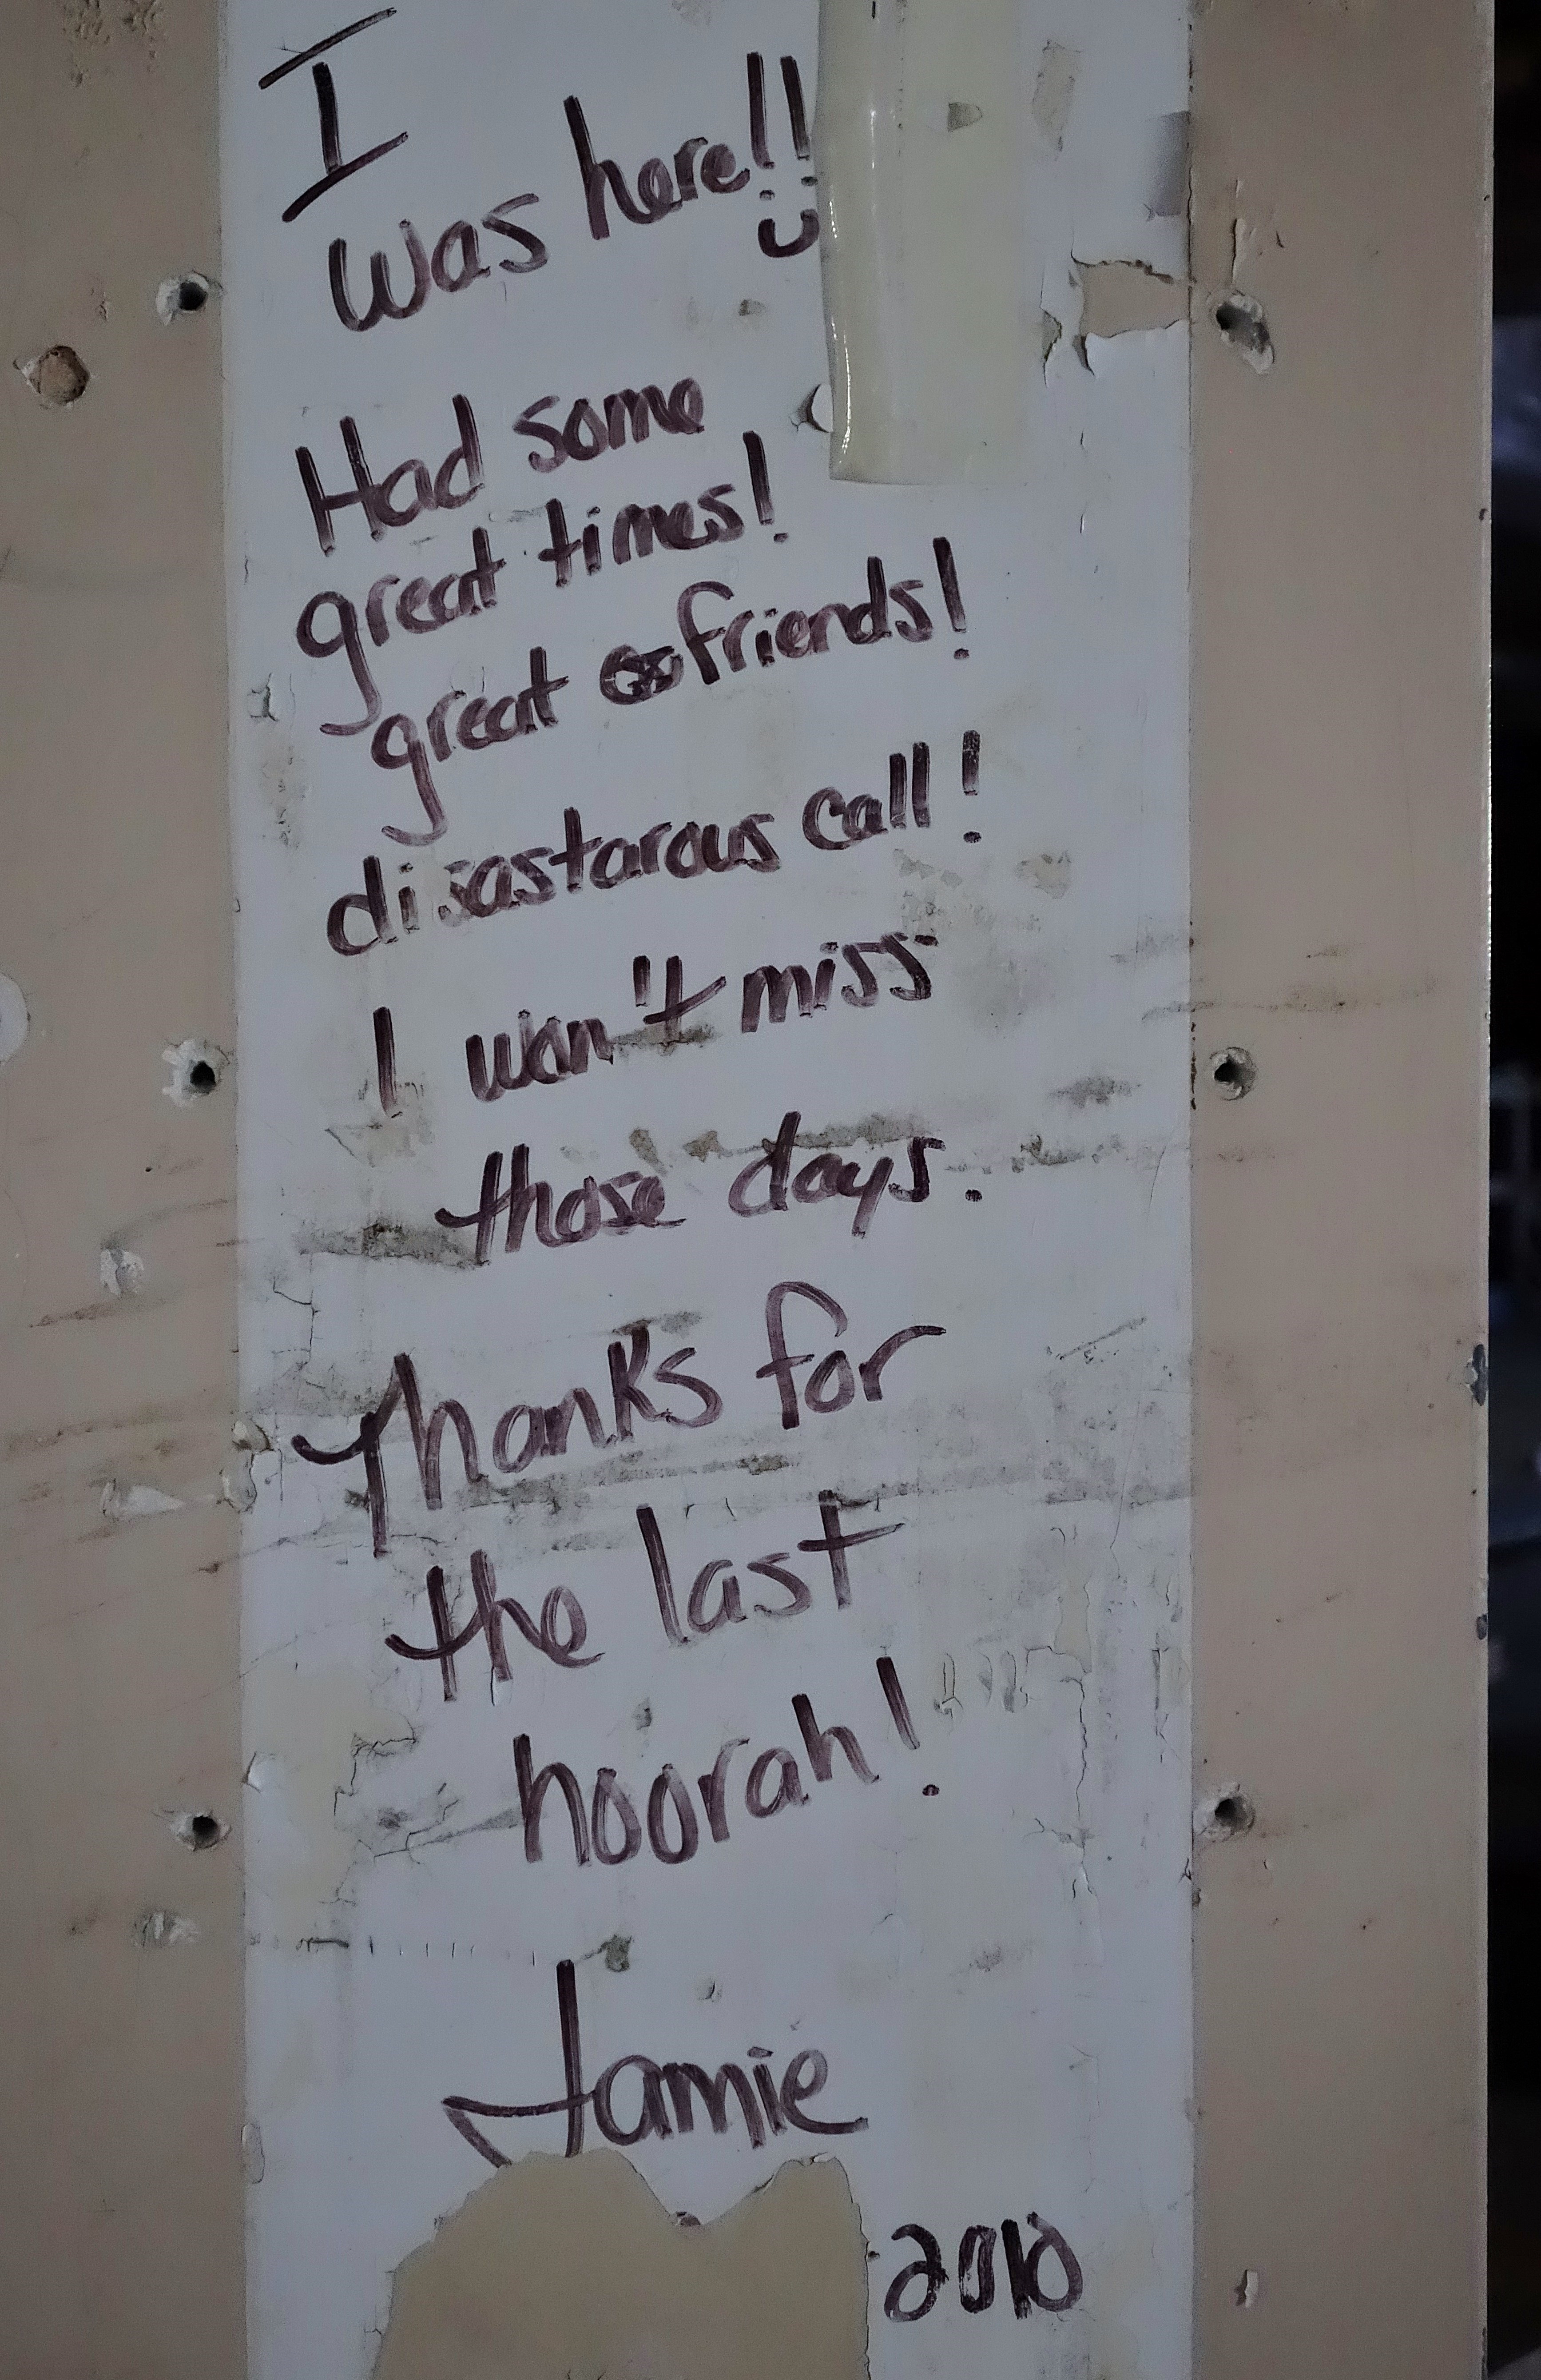 I
was here!!
Had some
great times!
great friends!
disastarous call!
I won't miss
those days.
Thanks for
the last
hoorah!
Jamie
2010